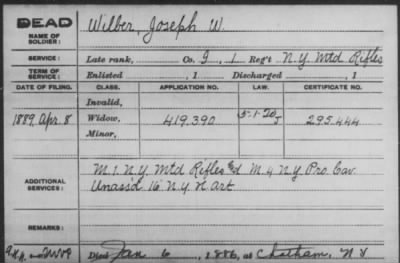 DEAD
NAME OF SOLDIER: Wilber, Joseph W.
SERVICE: Late rank, Co. I, 1 Reg't N.Y. Mtd Rifles
TERM OF SERVICE: Enlisted , 1 Discharged , 1
DATE OF FILING. CLASS. APPLICATION NO. LAW. CERTIFICATE NO.
Invalid,
1889, Apr. 8 Widow, 419.390 295.444
Minor,
ADDITIONAL SERVICES: M. 1. N.Y. Mtd Rifles & M. 4 N.Y. Pro. Cav
Unass'd 16 N.Y. H. Art
REMARKS:
Died Jan 6, 1886, at Chatham, N.Y.